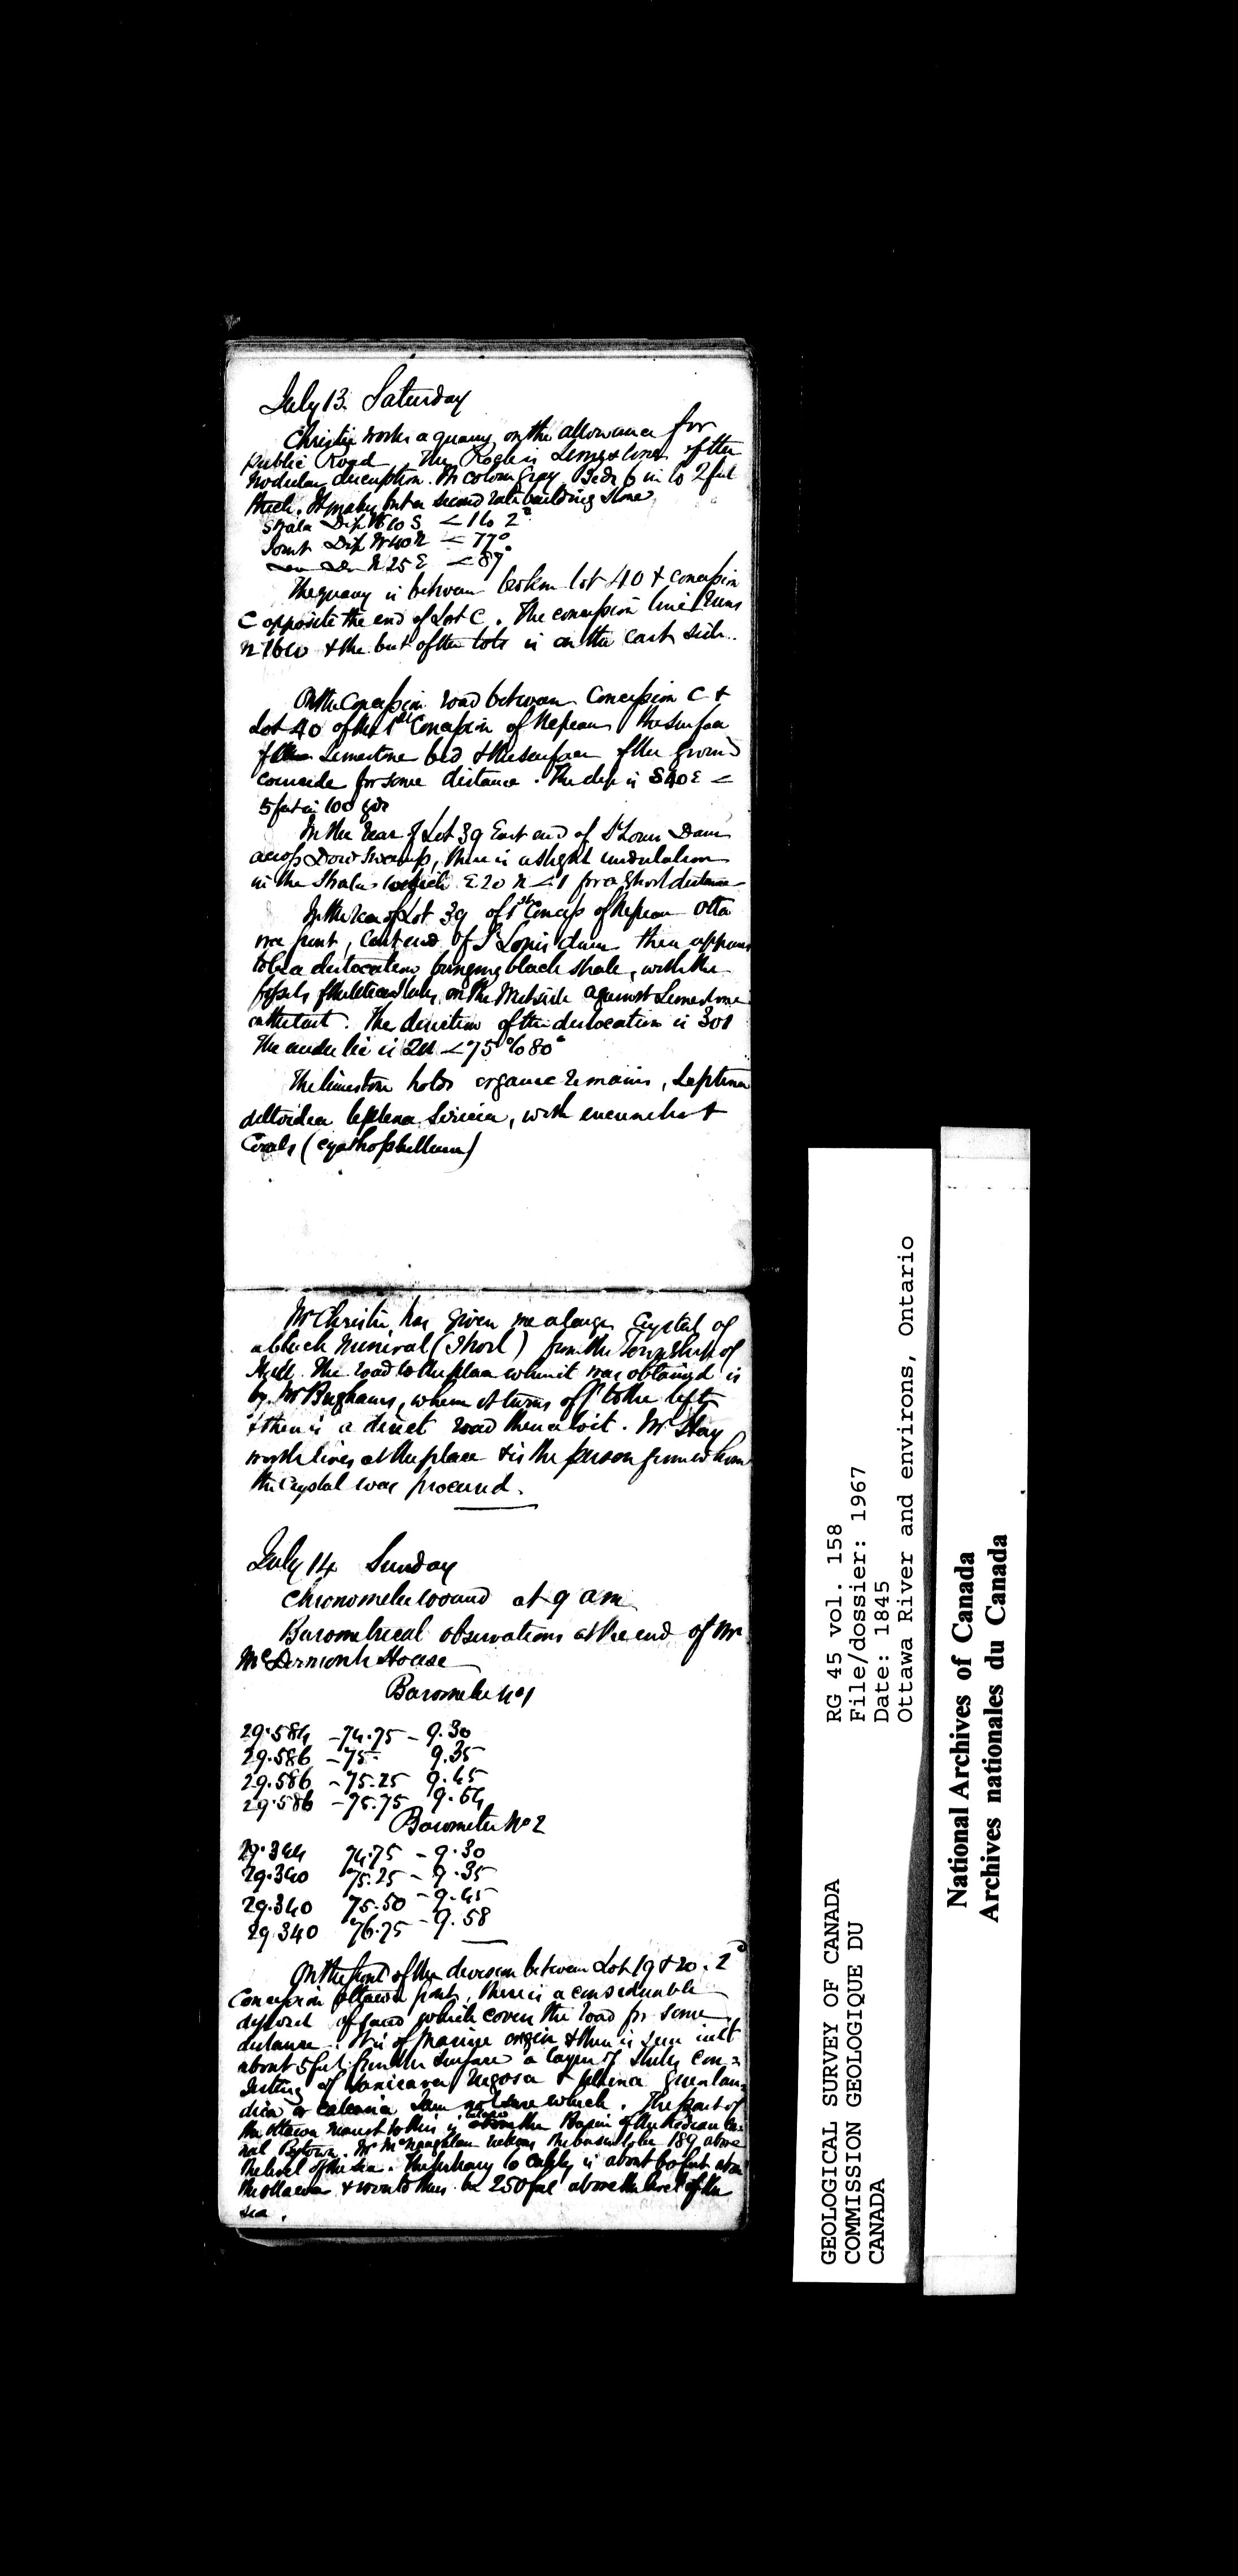 July 13. Saturday
Christie works a quarry on the allowance for
public Road. The Rock is Limestone of the
nodular description. Its colour gray. Beds 6 in to 2 feet
thick. It makes but a second rate building stone
Strata Dip W10S < 1 to 2°
Joint Dip W40N < 77°
N25E < 87°
The quarry is between broken lot 40 & concession
C opposite the end of Lot C. The concession line runs
N16W & the but of the lots is on the east side.
On the Concession road between Concession C &
Lot 40 of the 1st Concession of Nepean the surface
of the Limestone bed & the surface of the ground
coincide for some distance. The dip is S40E <
5 feet in 100 yds
In the rear of Lot 39 East end of St Louis Dam
across Dows swamp, there is a slight undulation
in the Strata E20N < 1 for a short distance
In the rear of Lot 39 of 1st Concess of Nepean Otta
wa front, East end of St Louis dam there appears
to be a dislocation bringing black shale, with the
fossils of the on the West side against Limestone
on the East. The direction of the dislocation is 301
The under lie is < 75° to 80°
The limestone holds organic remains, Leptena
deltoidea leptena Sericia, with encrinites &
Corals (cyathophyllum)
Mr Christie has given me a large Crystal of
a black mineral (Shorl) from the Township of
Hull. The road to the place where it was obtained is
by Mr Bighams, where it turns off to the left
& there is a direct road thence to it. Mr Hay
worth lives at the place & is the person from whom
the Crystal was procured.
July 14 Sunday
Chronometer wound at 9 am
Barometrical observations at the end of Mr
McDermonts House
Barometer No 1
29.584 - 74.75 - 9.30
29.586 - 75- 9.35
29.586 - 75.25 9.45
29.586 - 75.75 9.54
Barometer No 2
29.344 74.75 - 9.30
29.340 75.25 - 9.35
29.340 75.50 - 9.45
29.340 76.75 - 9.58
On the front of the division between Lot 19 & 20. 2d
Concession Ottawa front, there is a considerable
deposit of sand which covers the road for some
distance. It is of marine origin & there is seen in it
about 5 feet from the surface a layer of shells con=
sisting of Sanicava rugosa & tellina Greenlan=
dica or calcaria I am not sure which. The part of
the Ottawa nearest to this is the Basin of the Redeau Ca=
nal Bytown. Mr McNaughton reckons the basin to be 189 above
the level of the sea. The is about 60 feet above
the Ottawa & would thus be 250 feet above the level of the
sea.
RG 45 vol. 158
File/dossier: 1967
Date: 1845
Ottawa River and environs, Ontario
GEOLOGICAL SURVEY OF CANADA
COMMISSION GEOLOGIQUE DU
CANADA
National Archives of Canada
Archives nationales du Canada